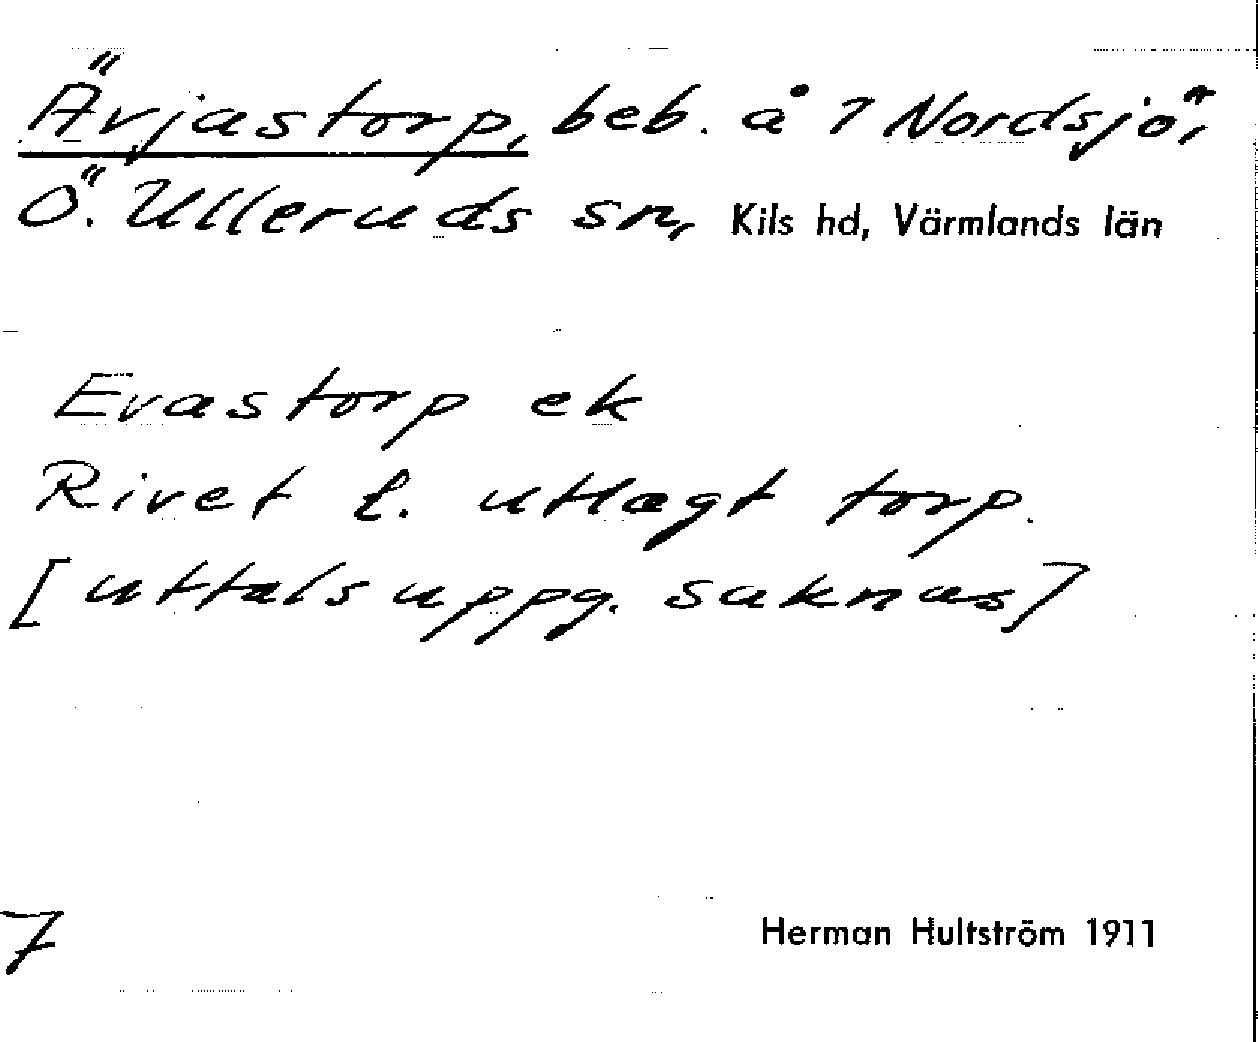 Ävjastorp, beb. å 7 Nordsjö,
Ö. Ulleruds sn, Kils hd, Värmlands län
Evastorp ek
Rivet l. utlagt torp.
[uttalsuppg. saknas]
7
Herman Hultström 1911